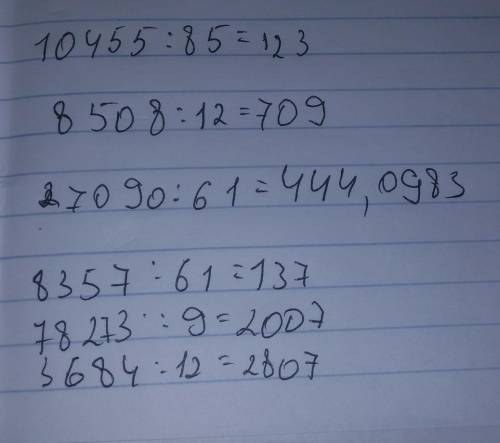 10455:85=123
8508:12=709
27090:61=444,0983
8357:61=137
78273:9=2007
3684:12=2807